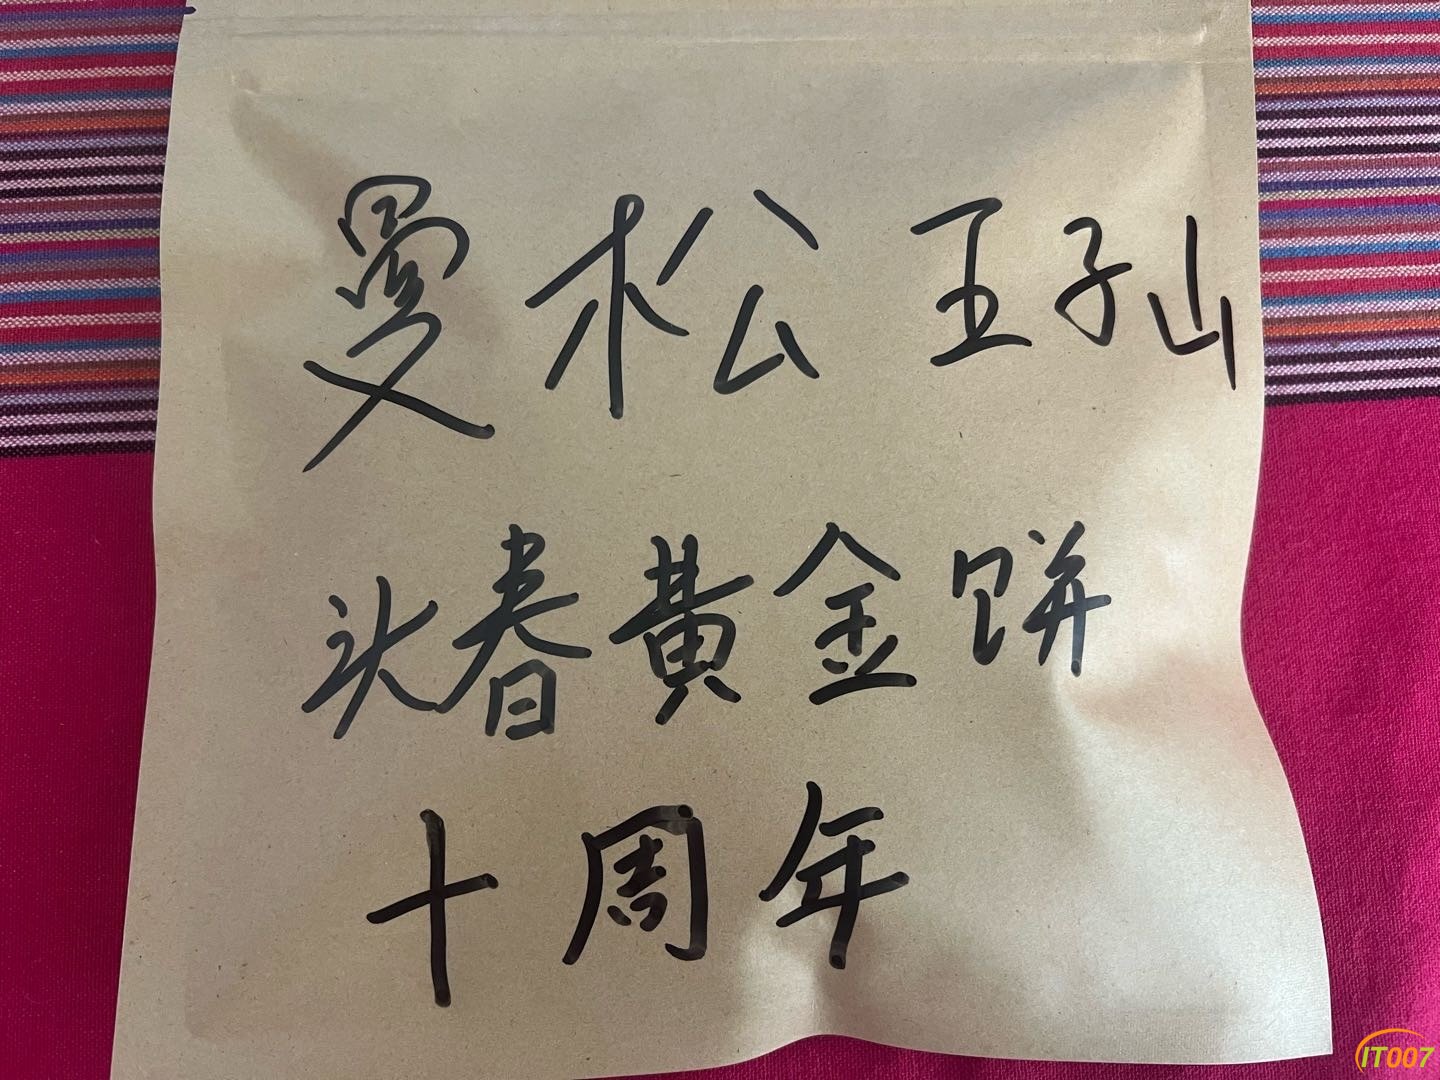 曼松王子山
头春黄金饼
十周年
IT007